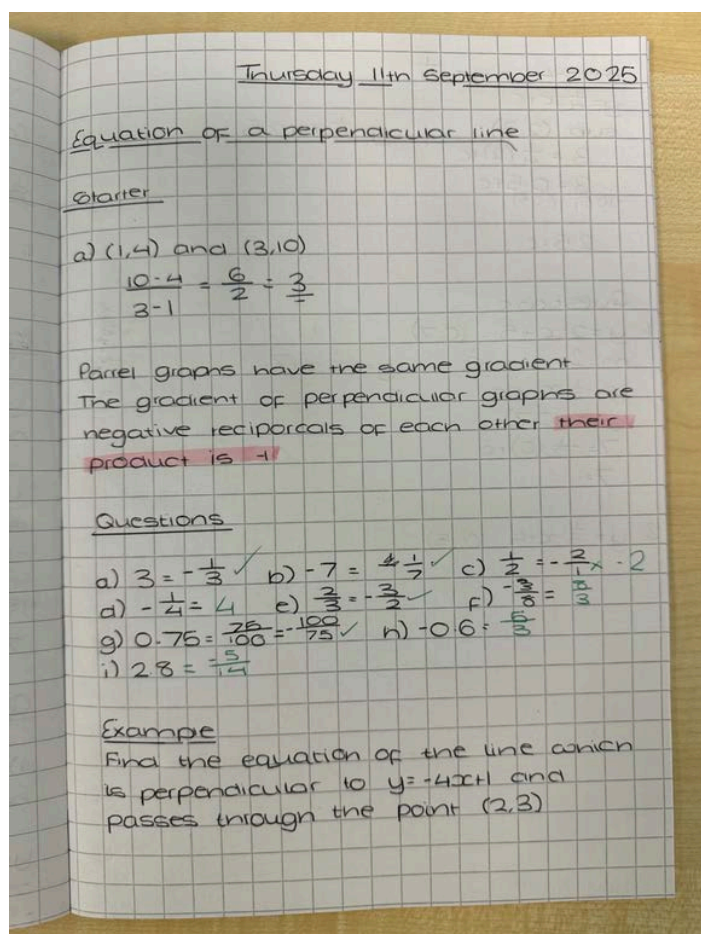 Thursday 11th September 2025
Equation of a perpendicular line
Starter
a) (1,4) and (3,10)
10-4 / 3-1 = 6/2 = 3
Parrel graphs have the same gradient
The gradient of perpendicular graphs are
negative reciporcals of each other their
product is -1
Questions
a) 3 = -1/3 ✓ b) -7 = 1/7 ✓ c) 1/2 = -2/1 × -2
d) -1/4 = 4 e) 2/3 = -3/2 ✓ f) -3/8 = 8/3
g) 0.75 = 75/100 = -100/75 ✓ h) -0.6 = 5/3
i) 2.8 = -5/14
Example
Find the equation of the line which
is perpendicular to y=-4x+1 and
passes through the point (2,3)